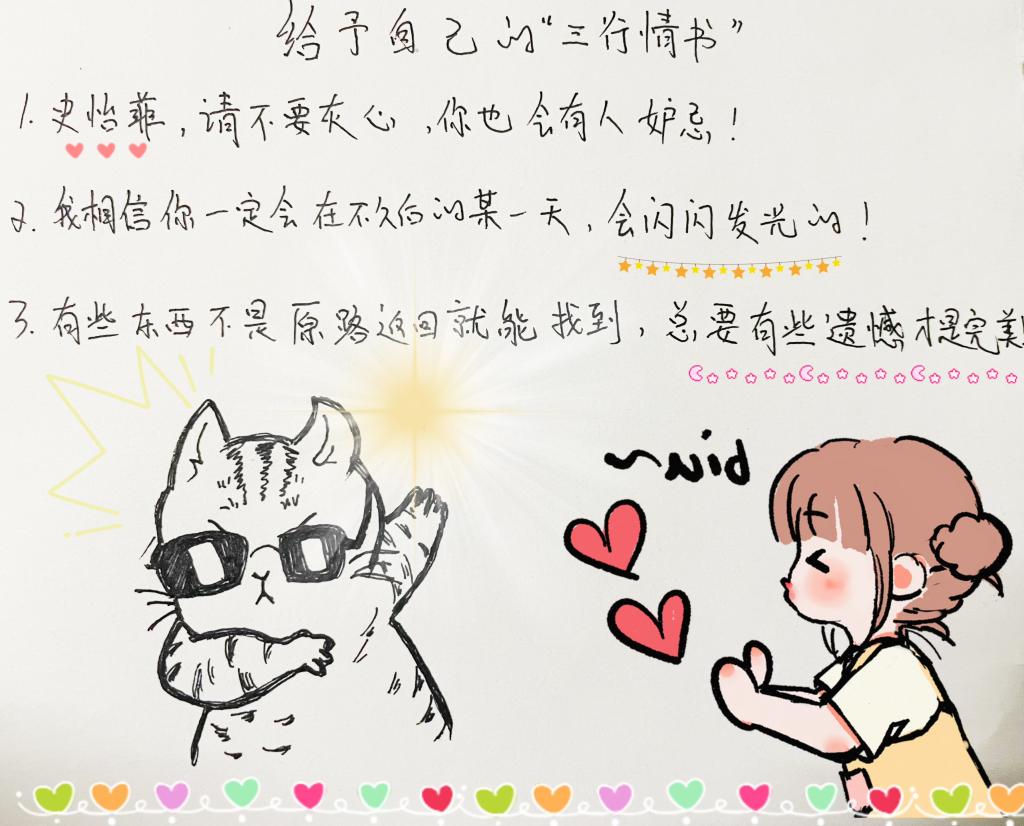 给予自己的“三行情书”
1. 史怡菲,请不要灰心,你也会有人妒忌!
2. 我相信你一定会在不久后的某一天,会闪闪发光的!
3. 有些东西不是原路返回就能找到,总要有些遗憾才是完美!
~biu